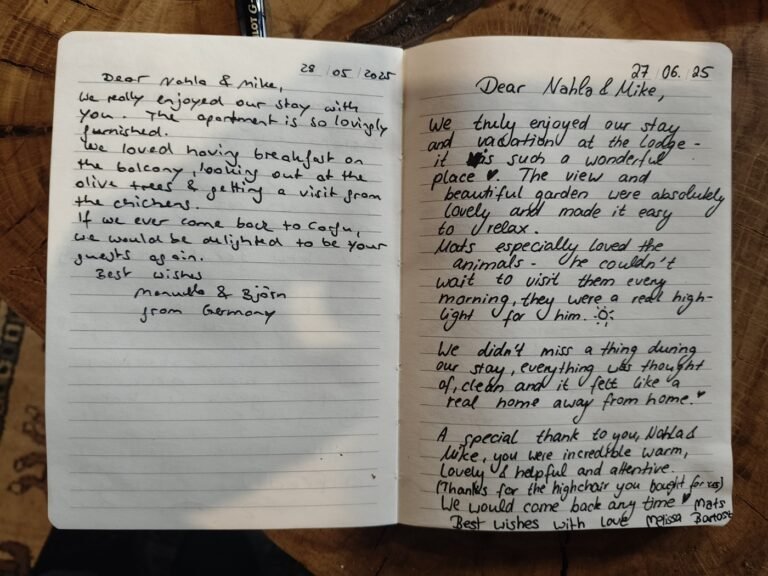 28 05 2025
Dear Nahla & Mike,
we really enjoyed our stay with
you. The apartment is so lovingly
furnished.
We loved having breakfast on
the balcony, looking out at the
olive trees & getting a visit from
the chickens.
If we ever come back to Corfu,
we would be delighted to be your
guests again.
Best wishes
Manuela & Björn
from Germany
27 06. 25
Dear Nahla & Mike,
We truly enjoyed our stay
and vacation at the lodge -
it is such a wonderful
place ♥. The view and
beautiful garden were absolutely
lovely and made it easy
to relax.
Mats especially loved the
animals - he couldn't
wait to visit them every
morning, they were a real high-
light for him. ☼
We didn't miss a thing during
our stay, everything was thought
of, clean and it felt like a
real home away from home. ♥
A special thank to you, Nahla &
Mike, you were incredible warm,
lovely & helpful and attentive.
(Thanks for the highchair you bought for us)
We would come back any time ♥ Mats
Best wishes with love Melissa